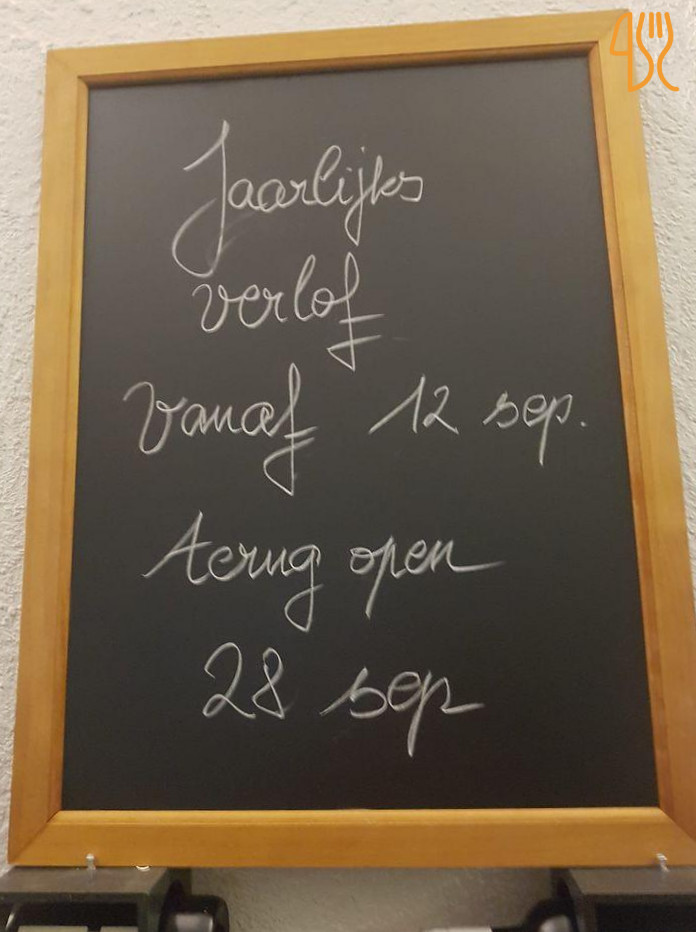 Jaarlijks
verlof
vanaf 12 sep.
terug open
28 sep